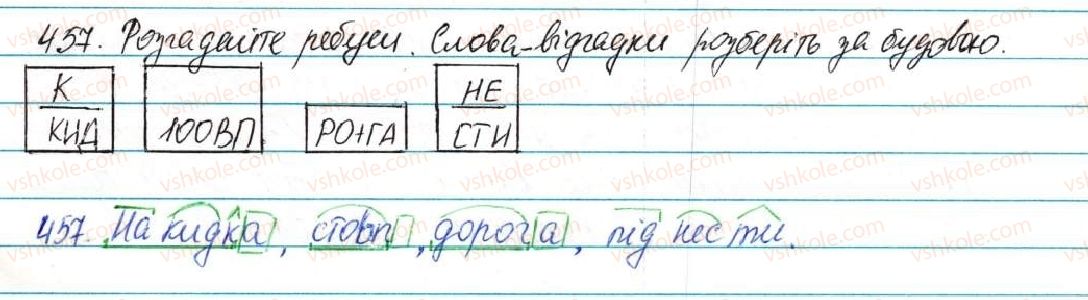 457. Розгадайте ребуси. Слова-відгадки розберіть за будовою.
К
КИД
100ВП
РО+ГА
НЕ
СТИ
457. Накидка, стовп, дорога, піднести.
vshkole.com